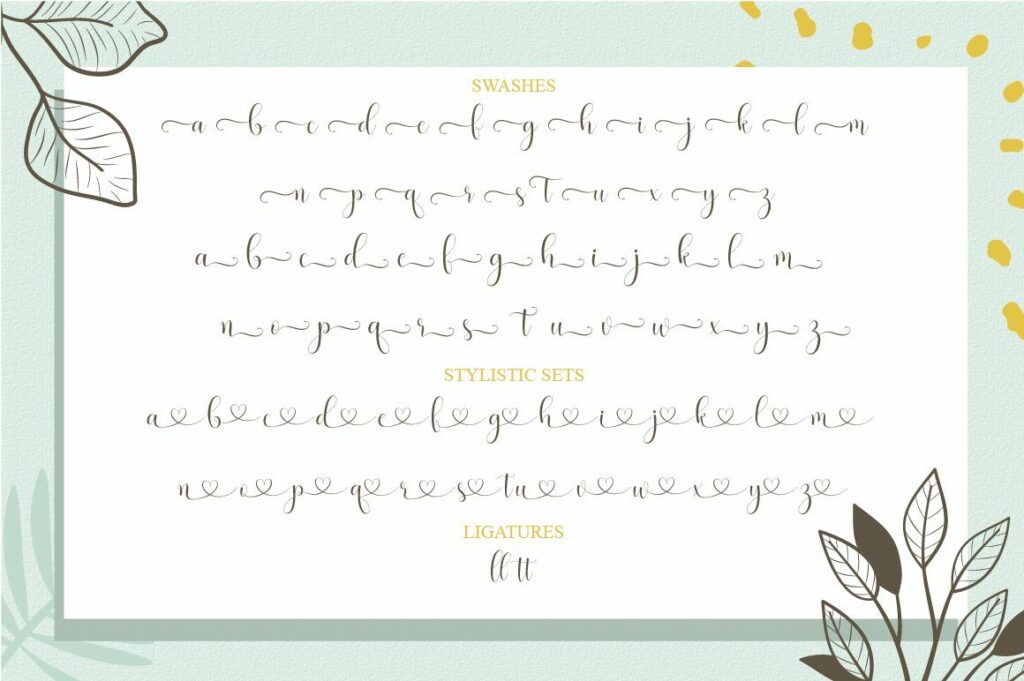 SWASHES
a b c d e f g h i j k l m
n p q r s T u x y z
a b c d e f g h i j k l m
n o p q r s t u v w x y z
STYLISTIC SETS
a b c d e f g h i j k l m
n o p q r s t u v w x y z
LIGATURES
ll tt